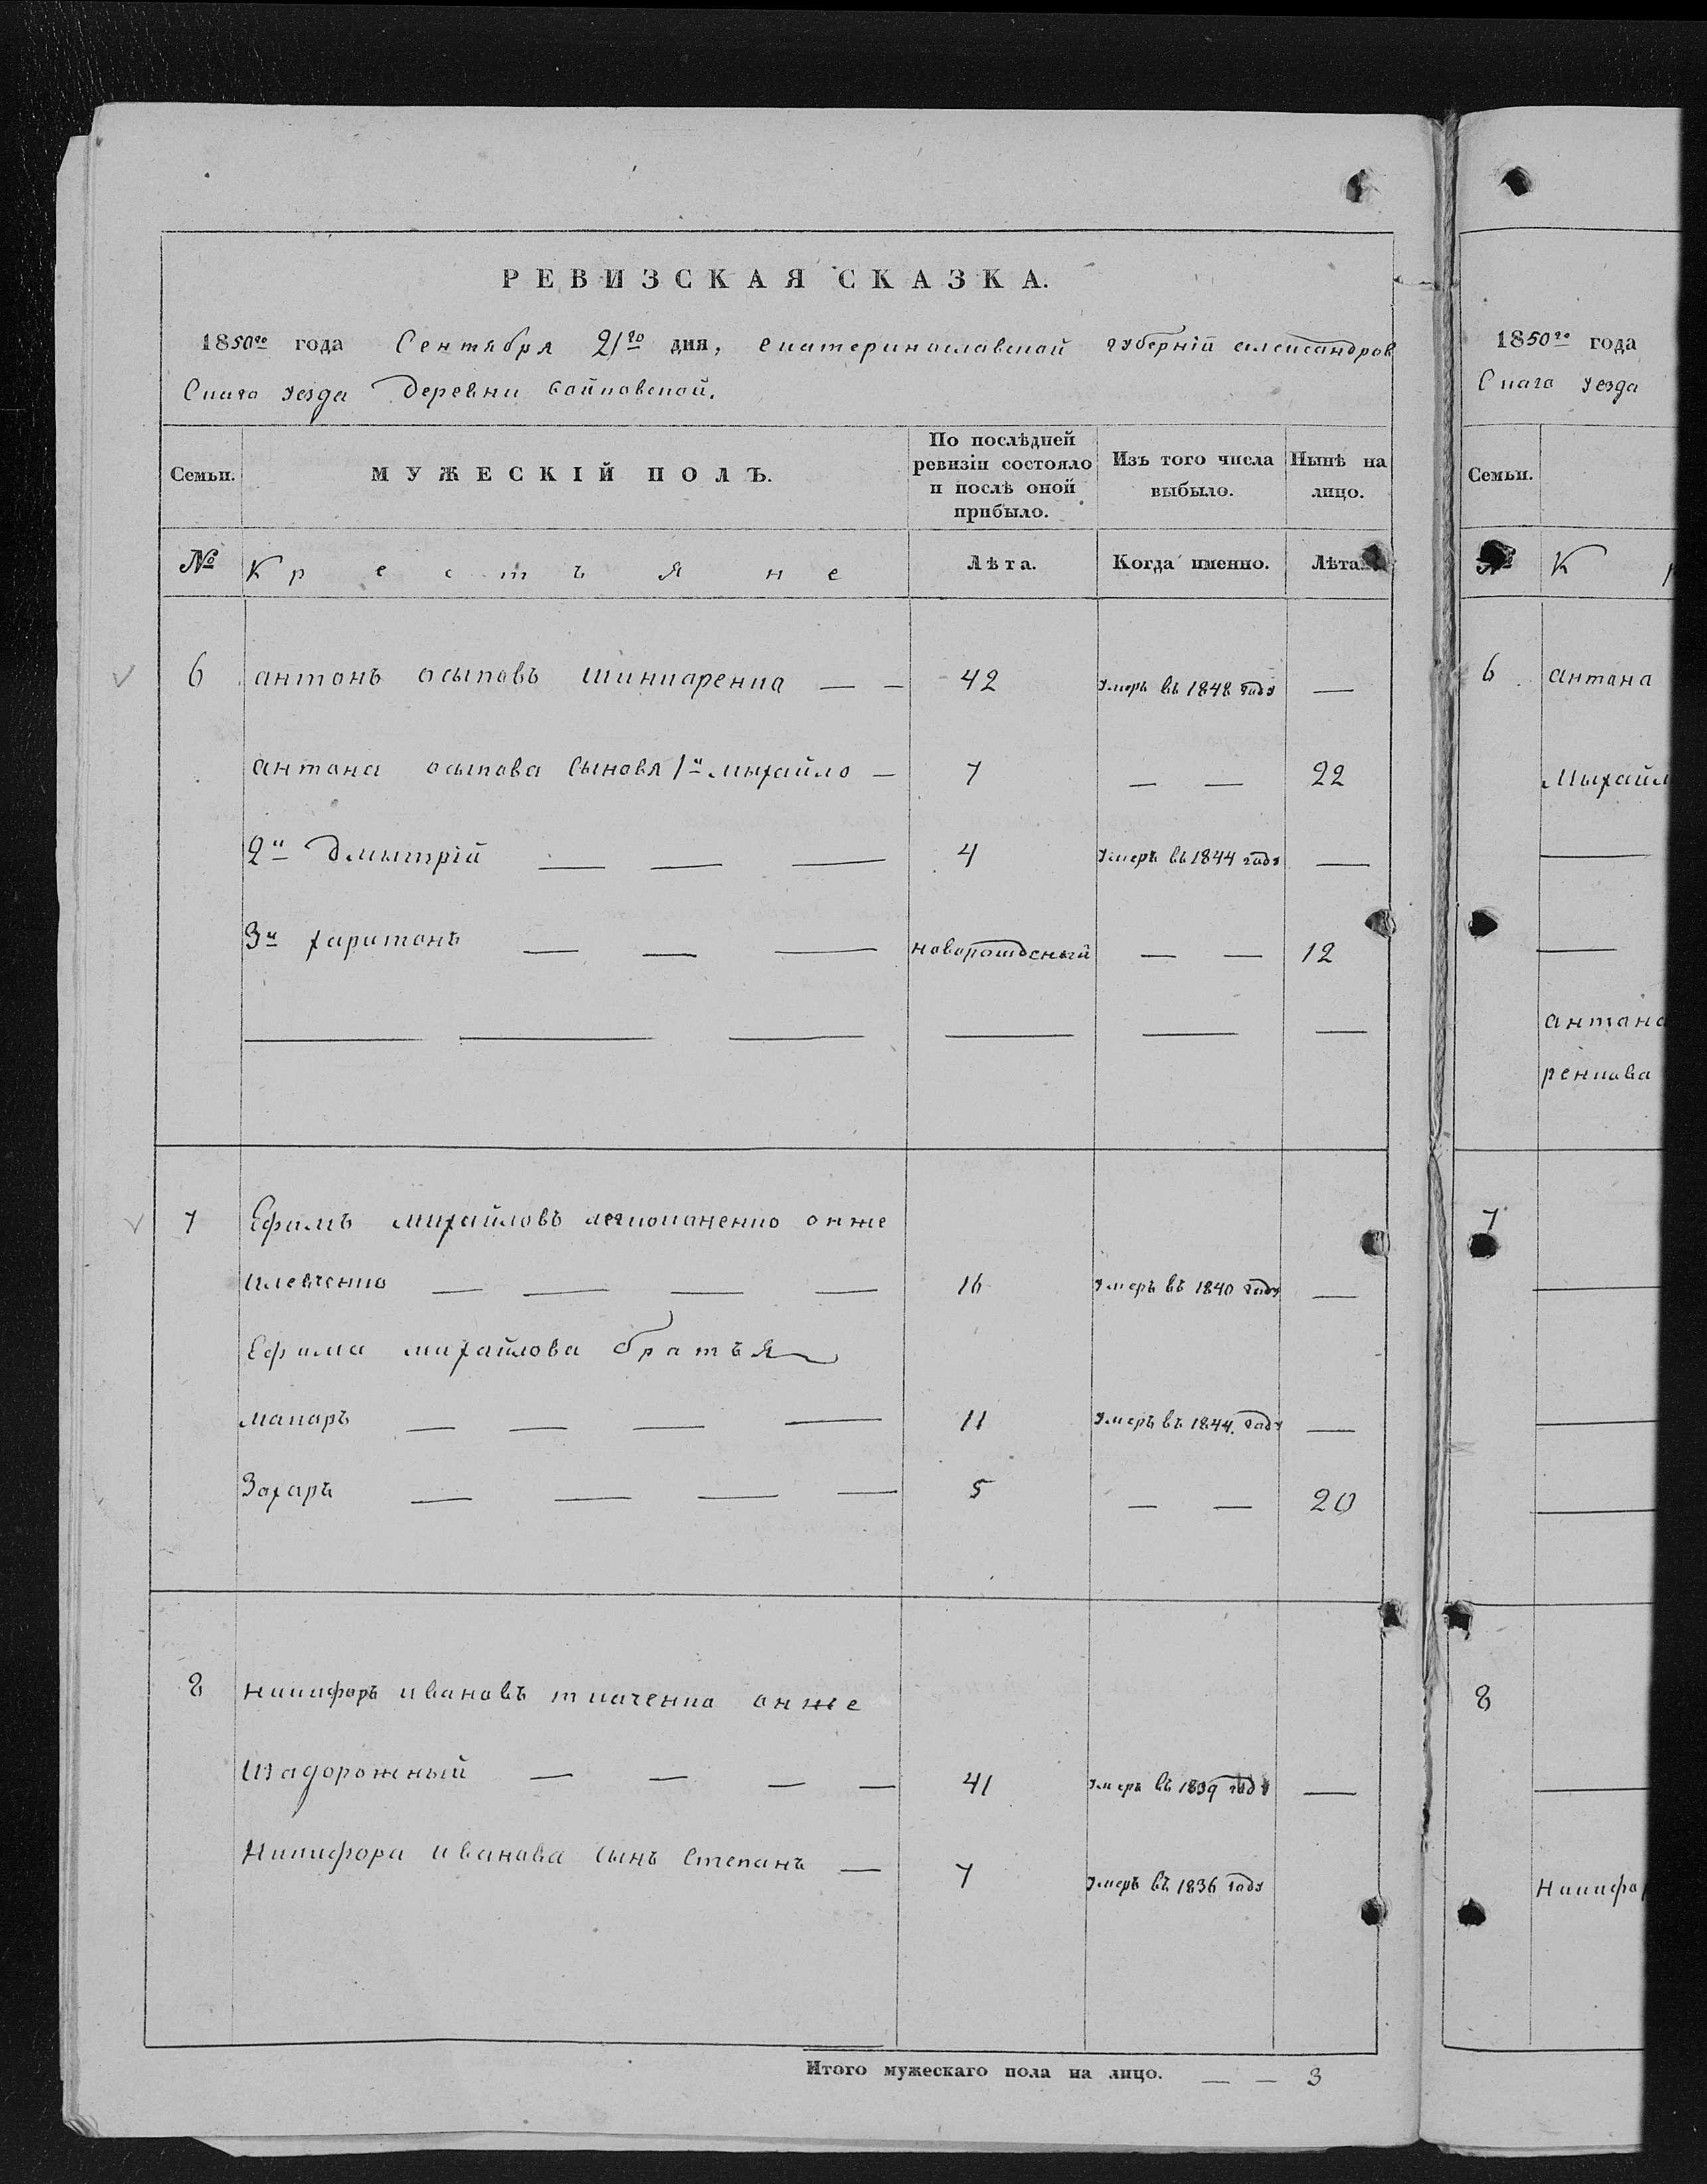 РЕВИЗСКАЯ СКАЗКА.
1850го года Сентября 21го дня, екатеринославской губерніи александров
скаго уезда деревни
Семьи. МУЖЕСКІЙ ПОЛЪ. По послѣдней ревизіи состояло и послѣ оной прибыло. Изъ того числа выбыло. Нынѣ на лицо.
№ Крестъяне Лѣта. Когда именно. Лѣта.
6 антонъ осыповъ шинкаренка — — 42 умеръ въ 1848 году —
антона осыпова сыновя 1й мыхайло — 7 — — 22
2й дмытрій — — — 4 умеръ въ 1844 году —
3й харитонъ — — — новорожденый — — 12
7 Ефимъ михайловъ онже
клевченко — — — — 16 умеръ въ 1840 году —
Ефима михайлова братъя
макаръ — — — — 11 умеръ въ 1844. году —
Захаръ — — — — 5 — — 20
8 никифоръ ивановъ ткаченко онже
изадорожный — — — — 41 умеръ въ 1839 году —
Никифора иванова сынъ степанъ — 7 умеръ въ 1836 году
Итого мужескаго пола на лицо. — — 3
1850го года
скаго уезда
Семьи.
№ К
6 антона
Мыхайл
антона
ренкова
7
8
Никифо